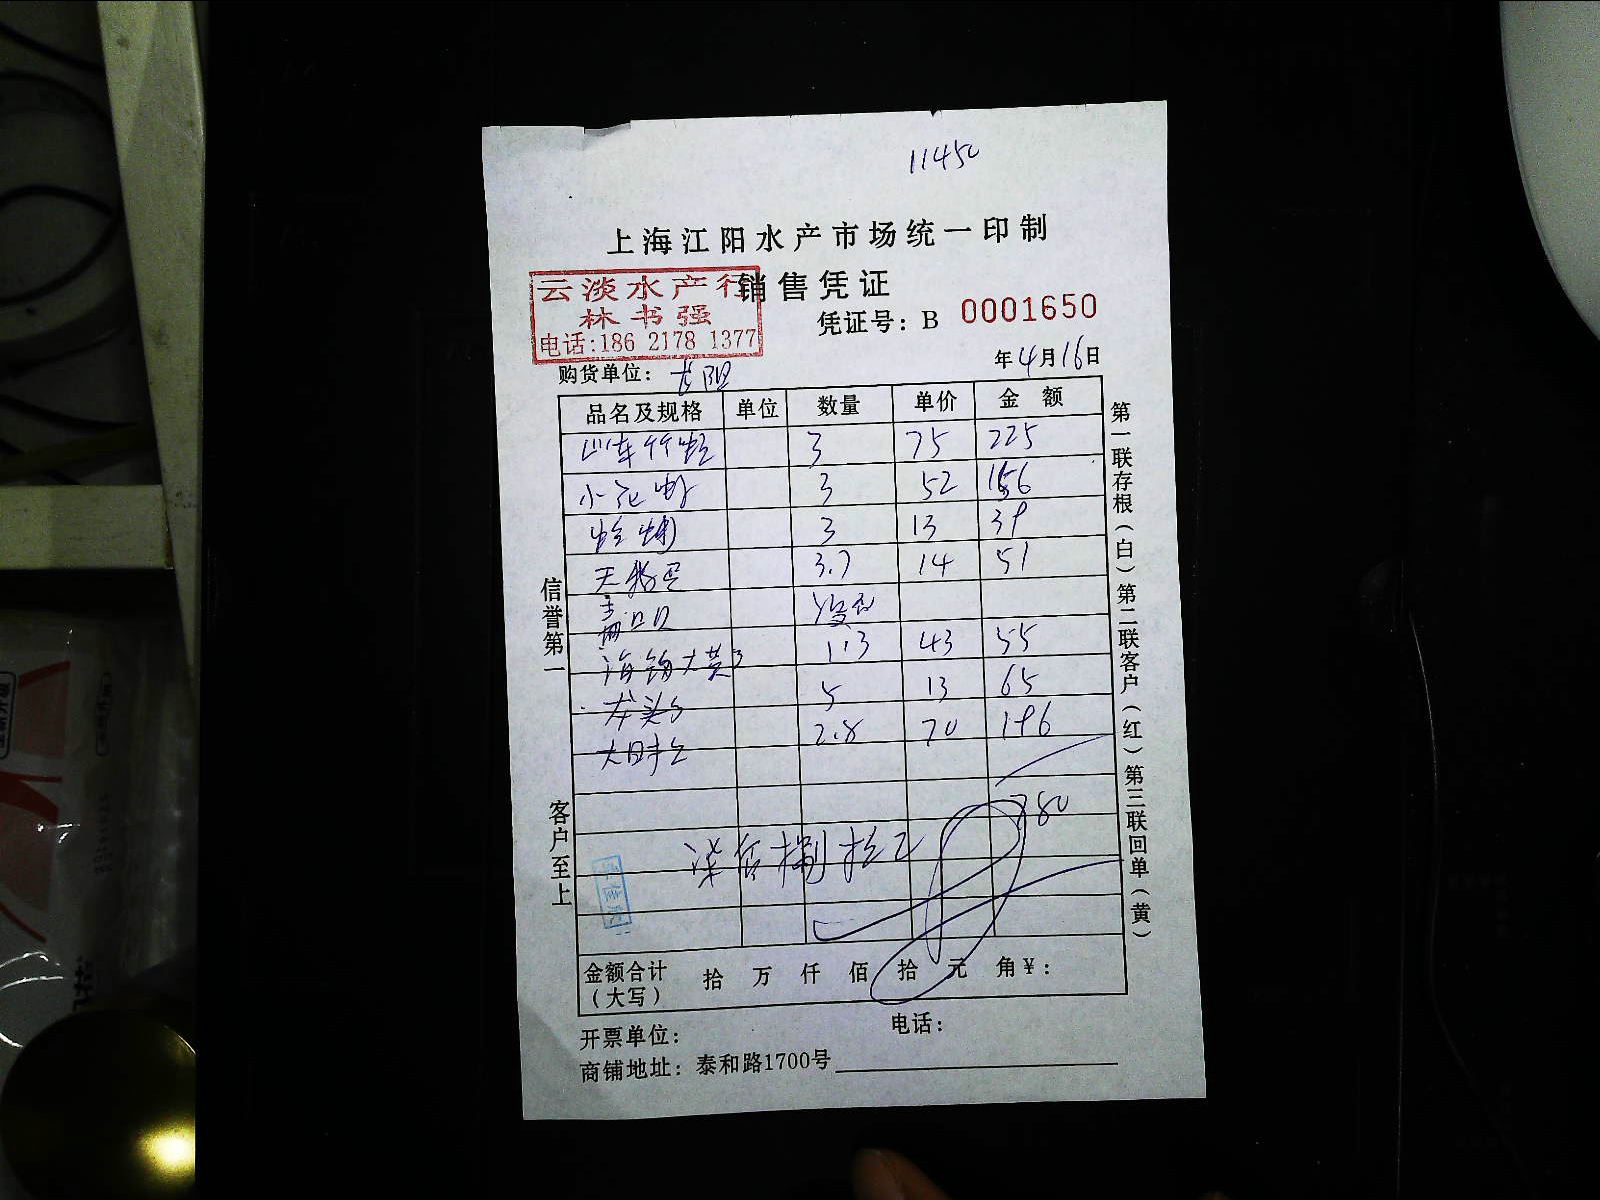 11450
上海江阳水产市场统一印制
云淡水产行
销售凭证
林书强
凭证号：B 0001650
电话:186 2178 1377
年4月16日
购货单位：
品名及规格 单位 数量 单价 金 额
山东竹蛏 3 75 225
小花 3 52 156
蛤蜊 3 13 39
3.7 14 51
海鲳大黄 1.3 43 55
龙头 5 13 65
2.8 70 196
780
柒百捌拾
金额合计（大写） 拾 万 仟 佰 拾 元 角 ¥：
开票单位： 电话：
商铺地址：泰和路1700号
信誉第一
客户至上
第一联存根（白）第二联客户（红）第三联回单（黄）